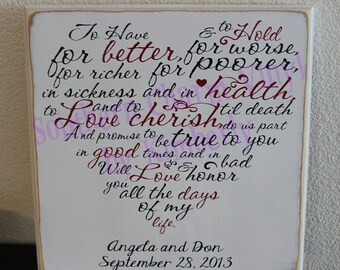 To Have & to Hold
for better, for worse,
for richer for poorer,
in sickness and in health,
to Love and to cherish, 'til death
do us part
And promise to be true to you
in good times and in bad
Will Love & honor
you all the days
of my
life.
Angela and Don
September 28, 2013